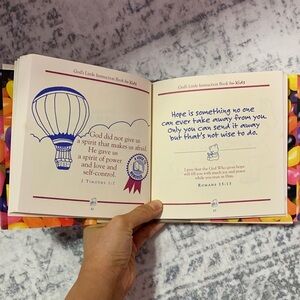 God's Little Instruction Book for Kids
God did not give us
a spirit that makes us afraid.
He gave us
a spirit of power
and love and
self-control.
God's Little Instruction Book for Kids
Hope is something no one
can ever take away from you.
Only you can send it away
but that's not wise to do.
I pray that the God who gives hope
will fill you with much joy and peace
while you trust in Him.
ROMANS 15:13